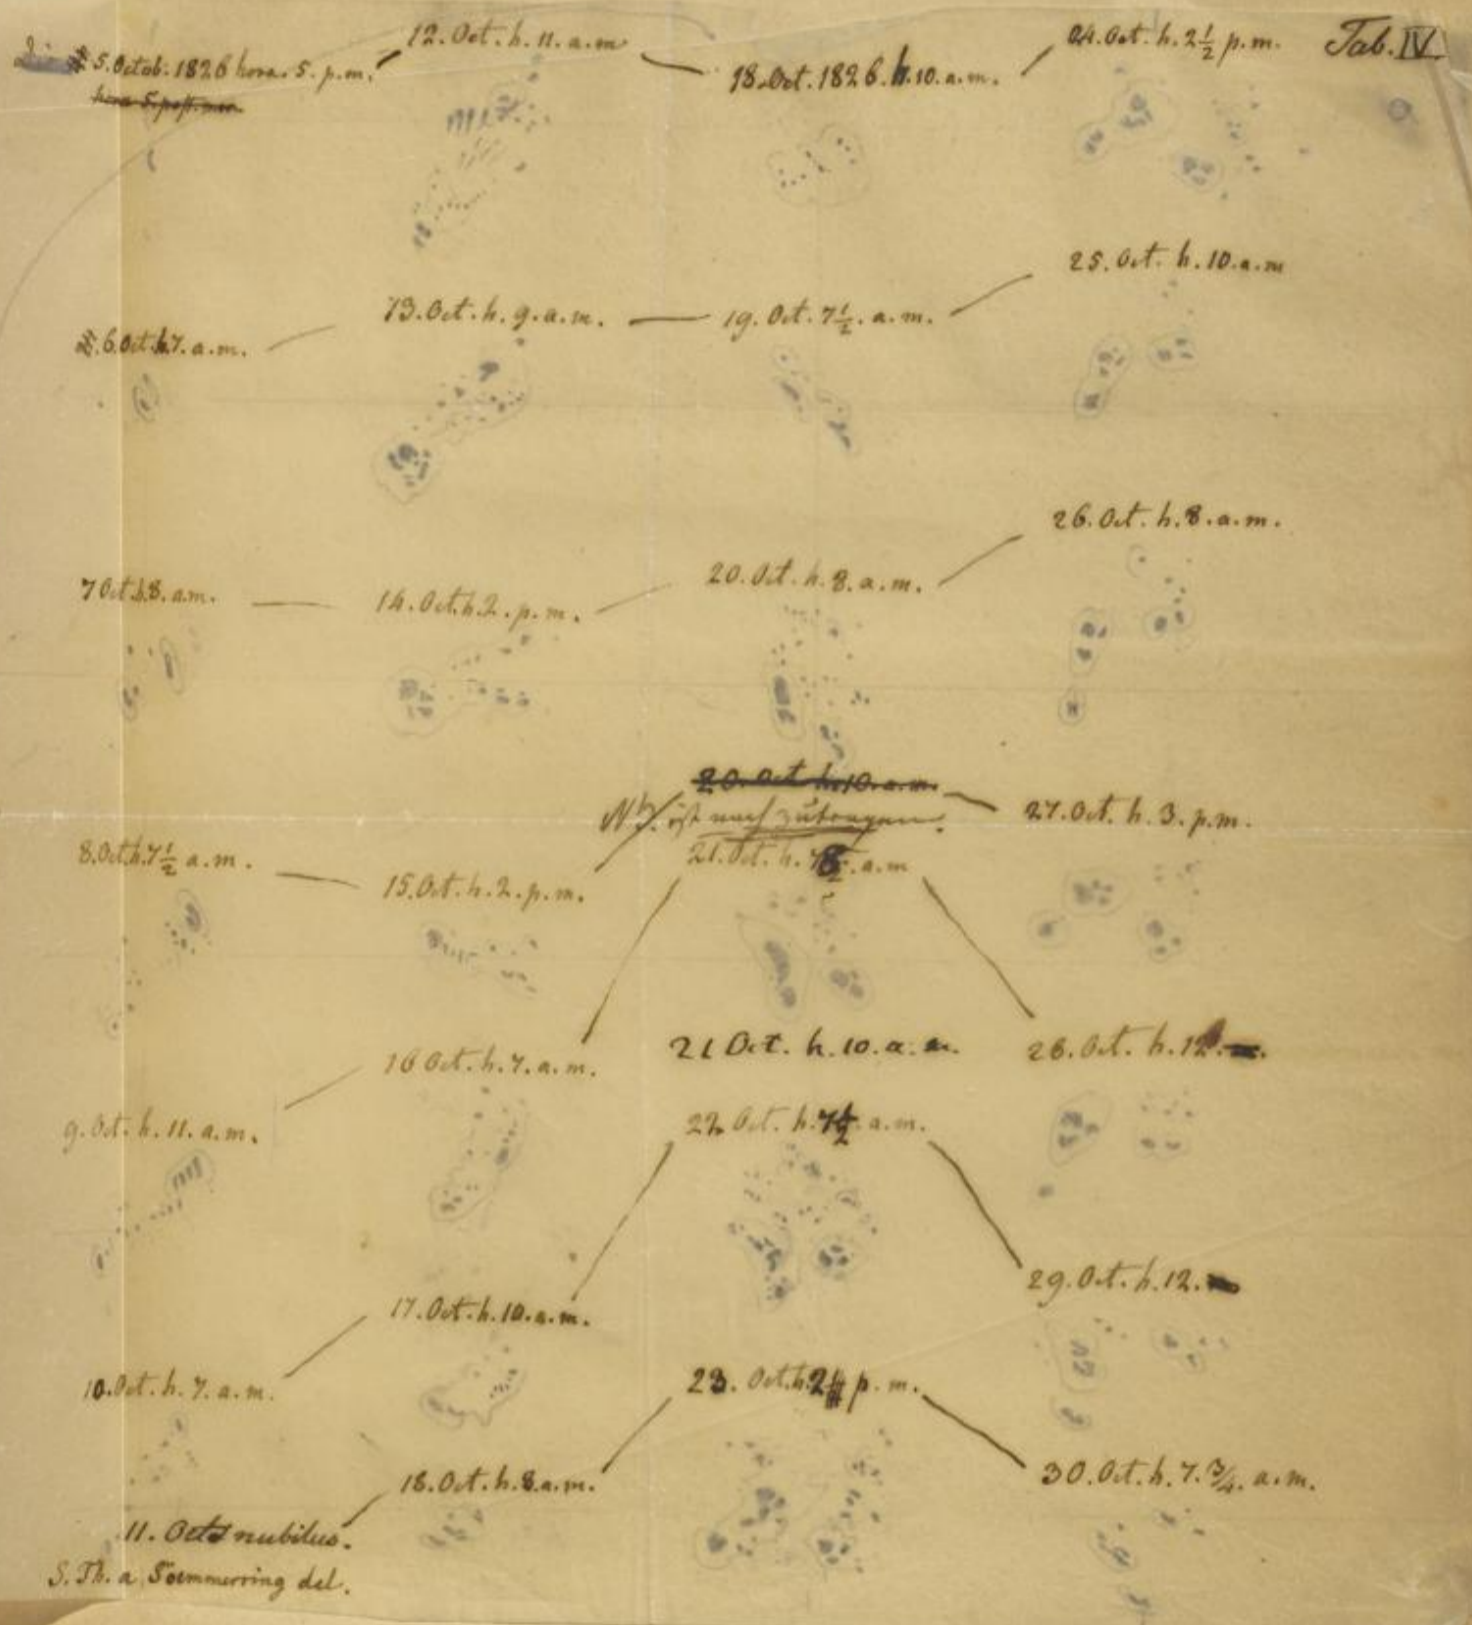 Tab. IV.
5. Octob. 1826 hora. 5. p.m.
hora 5. post. mer.
6. Oct. h. 7. a.m.
7 Oct. h. 8. a.m.
8. Oct. h. 7 1/2 a.m.
9. Oct. h. 11. a.m.
10. Oct. h. 7. a.m.
11. Oct. nubilus.
S. Th. a Soemmerring del.
12. Oct. h. 11. a.m
13. Oct. h. 9. a.m.
14. Oct. h. 2. p.m.
15. Oct. h. 2. p.m.
16 Oct. h. 7. a.m.
17. Oct. h. 10. a.m.
18. Oct. h. 8. a.m.
18. Oct. 1826. h. 10. a.m.
19. Oct. 7 1/2. a.m.
20. Oct. h. 8. a.m.
20. Oct h. 10. a.m.
NB. ist nach zutragen.
21. Oct. h. 8. a.m
21 Oct. h. 10. a. m.
22. Oct. h. 7 1/2. a.m.
23. Oct. h. 2 p.m.
24. Oct. h. 2 1/2 p.m.
25. Oct. h. 10. a.m
26. Oct. h. 8. a.m.
27. Oct. h. 3. p.m.
28. Oct. h. 12.
29. Oct. h. 12.
30. Oct. h. 7. 3/4. a.m.